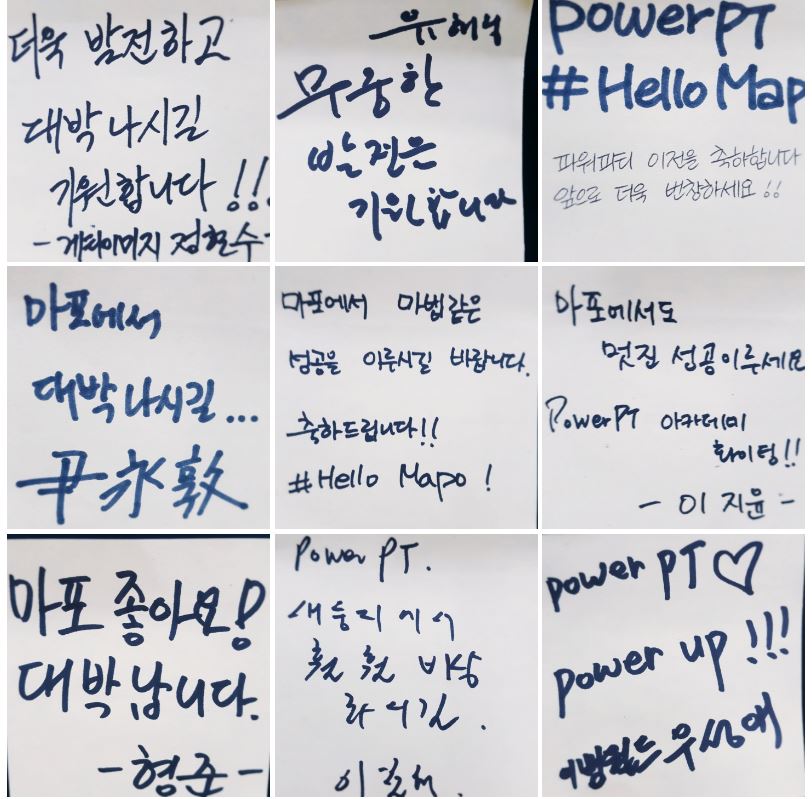 더욱 발전하고
대박 나시길
기원합니다 !!!
정현수-
무궁한
발전은
기원합니다
powerPT
#Hello Map
파워피티 이전을 축하합니다
앞으로 더욱 번창하세요 !!
마포에서
대박 나시길...
尹永敦
마포에서 마법같은
성공을 이루시길 바랍니다.
축하드립니다!!
#Hello Mapo !
마포에서도
멋진 성공이루세요
PowerPT 아카데미
화이팅!!
- 이지윤 -
마포 좋아요!
대박납니다.
-형준-
Power PT.
새둥지에서
훨훨 비상
하시길.
power PT♡
power up !!!